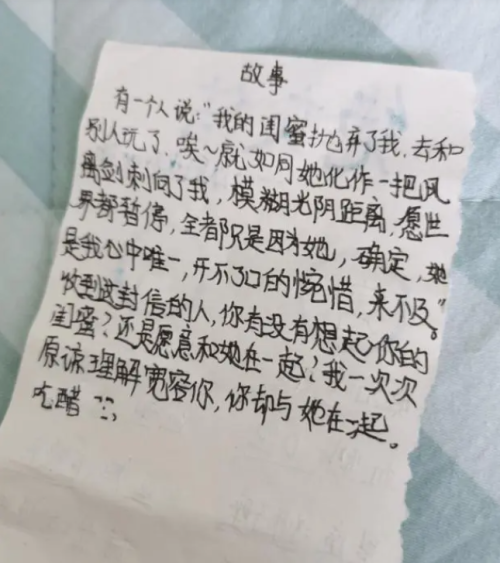 故事
有一个人说："我的闺蜜抛弃了我，去和
别人玩了，唉~就如同她化作一把风
离剑刺向了我，模糊光阴距离，愿世
界都暂停，全都只是因为她，确定，她
是我心中唯一，开不了口的惋惜，来不及。"
收到这封信的人，你有没有想起你的
闺蜜？还是愿意和她在一起？我一次次
原谅理解宽容你，你却与她在一起。
吃醋